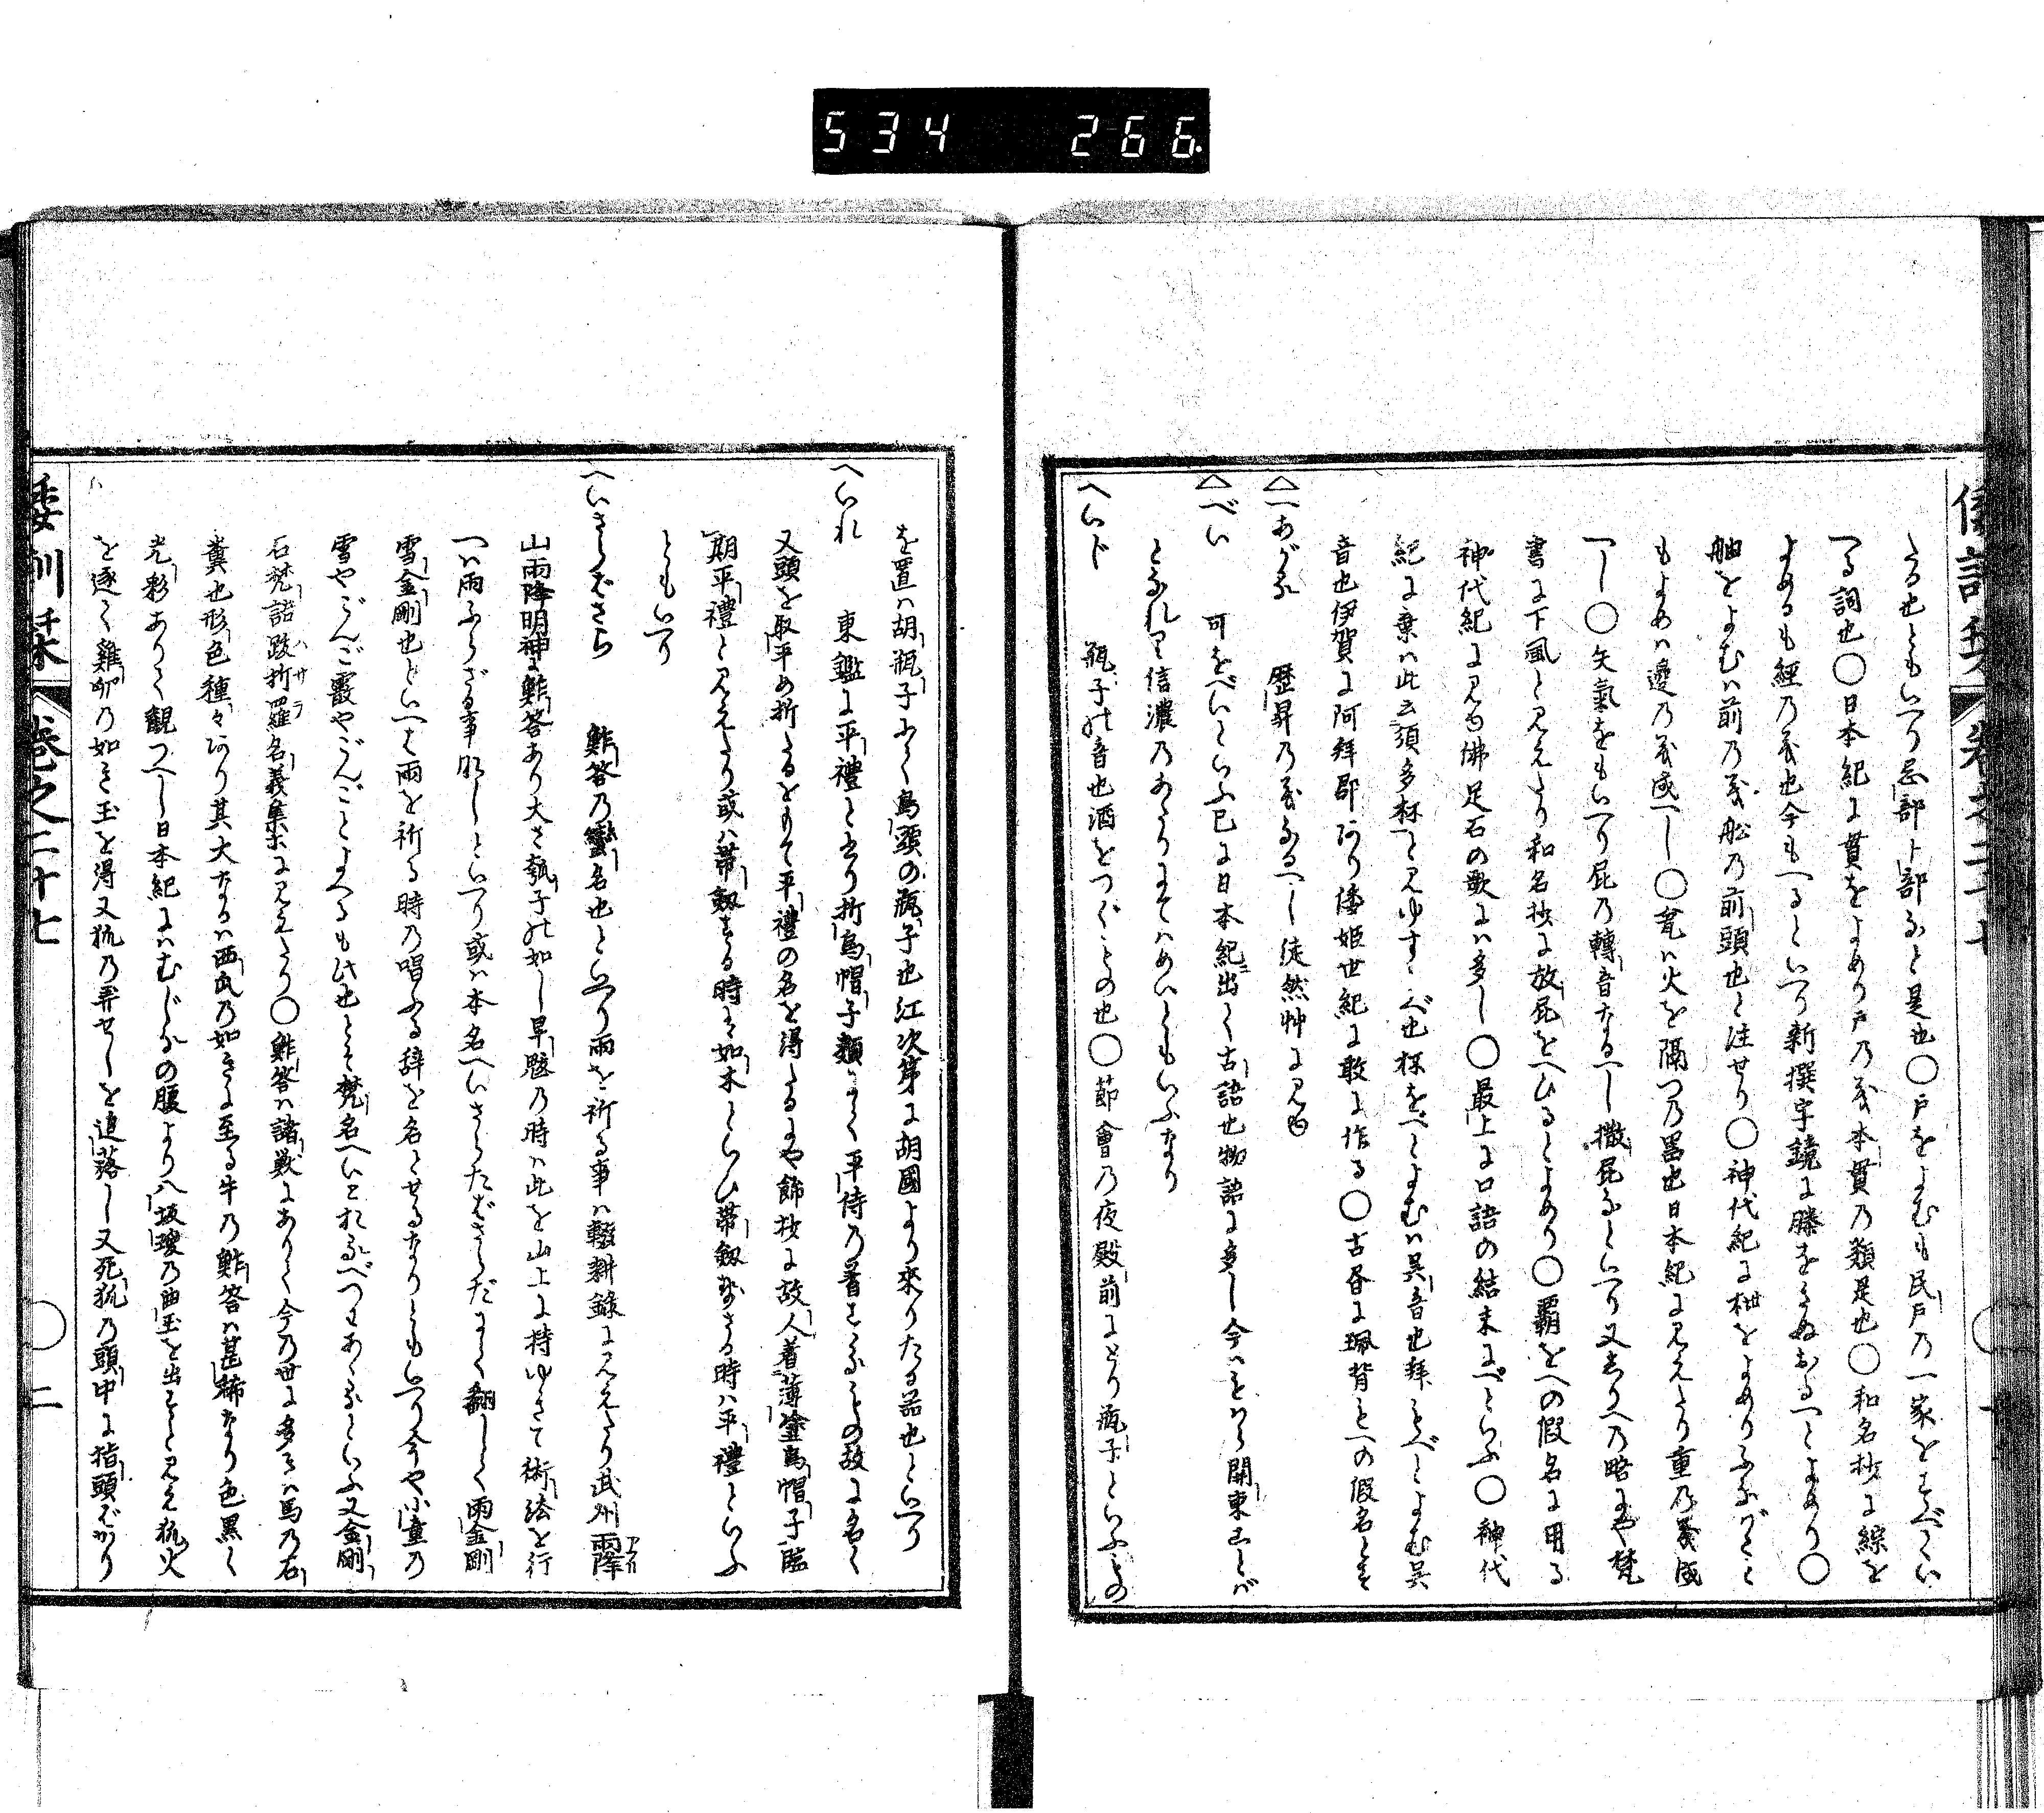 534 266
たる也ともいへり忌部卜部など是也〇戸をよむも民戸乃一家をすべてい
へる詞也〇日本紀に貫をよめり戸乃義本貫乃類是也〇和名抄に綜を
よめるも經乃義也今もへるといへり新撰字鏡に縢をよめり〇
舳をよむハ前乃義舩乃前頭也と注せり〇神代紀に枻をよめり
もよめハ邊乃義成へし〇竃ハ火を隔つ乃畧也日本紀に見えたり重乃義成
へし〇矢氣をもいへり屁乃轉音なるへし撒屁などいへり又しりへ乃略にや梵
書に下風と見えたり和名抄に放屁をへひるとよめり〇覇をへの假名に用る
神代紀に見ゆ佛足石の歌にハ多し〇最上に口語の結末にべといふ〇神代
紀に乗ハ此云頭多杯と見ゆすゝべ也杯をべとよむハ呉音也拜もべとよむ呉
音也伊賀に阿拜郡あり倭姫世紀に敢に作る〇古昔に珮背をへの假名とす
△へあがる 歴昇乃義なるへし徒然艸に見ゆ
△べい 可をべいといふ已に日本紀ニ出て古語也物語に多し今ハをハら關東ことバ
となれり信濃乃あたりにてハめいともいふなり
へいじ 瓶子の音也酒をつぐもの也〇節會乃夜殿前にとり瓶子といふもの
を置ハ胡瓶子にて鳥頭の瓶子也江次第に胡國より來りたる器也といへり
へいれ 東鑑に平禮とあり折烏帽子類にて平侍乃着するもの故に名く
又頭を取平め折たるをもて平禮の名を得たるにや飾抄に故人着薄塗烏帽子臨
期平禮と見えたり或ハ帶劔する時を如木といひ帶劔せさる時ハ平禮といふ
ともいへり
へいさらばさら 鮓答乃蠻名也といへり雨を祈る事ハ輟耕錄に見えたり武州雨降
山雨降明神に鮓答あり大さ瓠子の如し旱魃乃時ハ此を山上に持ゆきて術法を行
へハ雨ふらざる事なしといへり或ハ本名へいさらたばさらだにて翻して雨金剛
雪金剛也といへは雨を祈る時乃唱ふる辞を名とせるなりともいへり今や小童の
雪やこんこ霰やこんことよへるも此也とそ梵名へいとれるべつとあるなといふ又金剛
石梵語跋折羅名義集に見えたり〇鮓答ハ諸獸にありて今乃世に多きハ馬乃石
糞也形色種々あり其大なるハ西瓜乃如きに至る牛乃鮓答ハ甚稀なり色黒く
光彩ありて観つへし日本紀にハむじなの腹より八坂瓊乃曲玉を出すと見え狐火
を逐て雞卵乃如き玉を得又狐乃弄せしを追落し又死狐乃頭中に指頭ばかり
倭訓栞 巻之二十七 〇 二